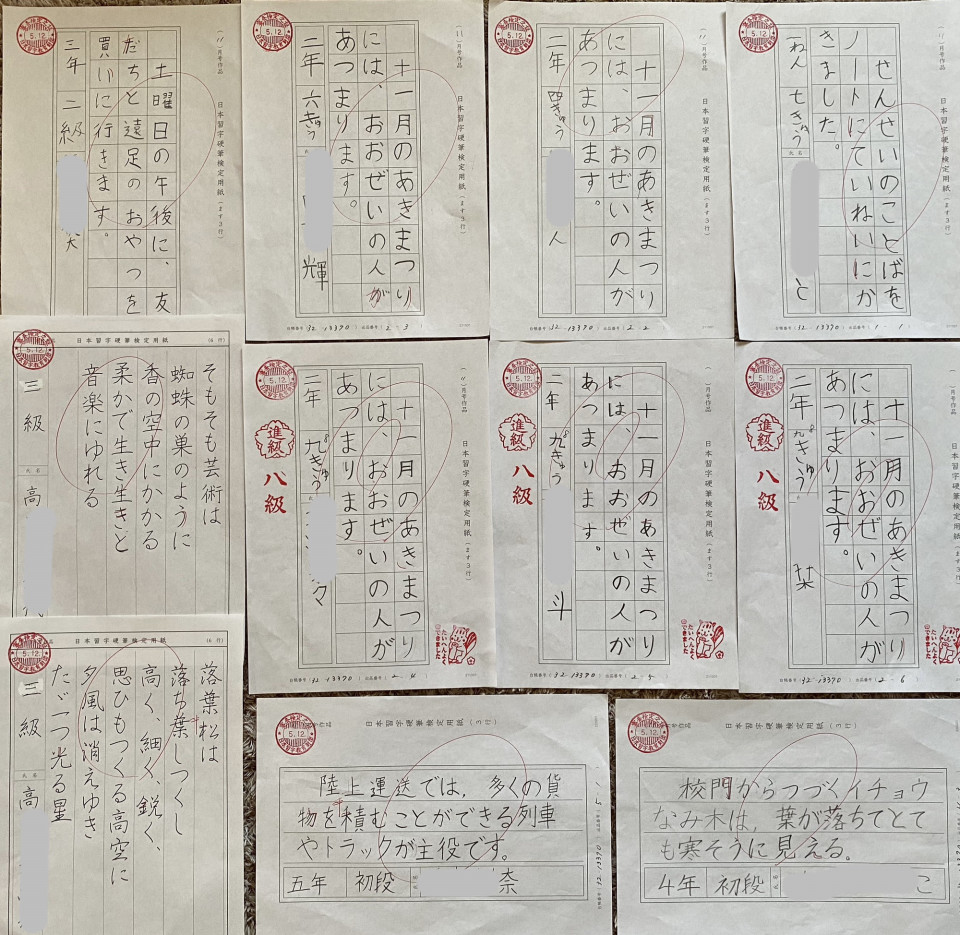 土曜日の午後に、友
だちと遠足のおやつを
買いに行きます。
三年 二級
日本習字硬筆検定用紙(ます3行)
十一月のあきまつり
には、おおぜいの人が
あつまります。
二年 六きゅう 輝
日本習字硬筆検定用紙(ます3行)
2-3
十一月のあきまつり
には、おおぜいの人が
あつまります。
二年 四きゅう 人
日本習字硬筆検定用紙(ます3行)
2-2
せんせいのことばを
ノートにていねいにか
きました。
一ねん 七きゅう と
日本習字硬筆検定用紙(ます3行)
1-1
日本習字硬筆検定用紙 (6行)
そもそも芸術は
蜘蛛の巣のように
香の空中にかかる
柔かで生き生きと
音楽にゆれる
三級 高
十一月のあきまつり
には、おおぜいの人が
あつまります。
二年 九きゅう
進級 八級
日本習字硬筆検定用紙(ます3行)
たいへんよくできました
2-4
十一月のあきまつり
には、おおぜいの人が
あつまります。
二年 九きゅう 斗
進級 八級
日本習字硬筆検定用紙(ます3行)
たいへんよくできました
2-5
十一月のあきまつり
には、おおぜいの人が
あつまります。
二年 九きゅう 栞
進級 八級
日本習字硬筆検定用紙(ます3行)
たいへんよくできました
2-6
日本習字硬筆検定用紙 (6行)
落葉松は
落ち葉しつくし
高く、細く、鋭く、
思ひもつくる高空に
夕風は消えゆき
たゞ一つ光る星
三級 高
日本習字硬筆検定用紙(3行)
陸上運送では、多くの貨
物を積むことができる列車
やトラックが主役です。
五年 初段 奈
日本習字硬筆検定用紙(3行)
校門からつづくイチョウ
なみ木は、葉が落ちてとて
も寒そうに見える。
4年 初段 こ
5.12